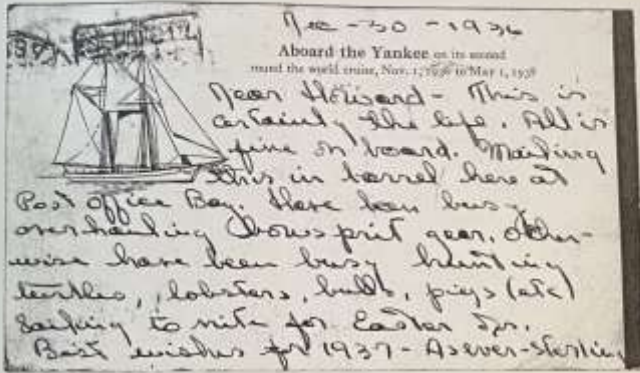 Dec - 30 - 1936
Aboard the Yankee on its second
round the world cruise, Nov. 1, 1936 to May 1, 1938
Dear Howard - This is
certainly the life. All is
fine on board. Mailing
this in barrel here at
Post Office Bay. Have been busy
overhauling bowsprit gear, other-
wise have been busy hunting
turtles, lobsters, bulls, pigs (etc)
Sailing to nite for Easter Is.
Best wishes for 1937 - As ever - Sterling